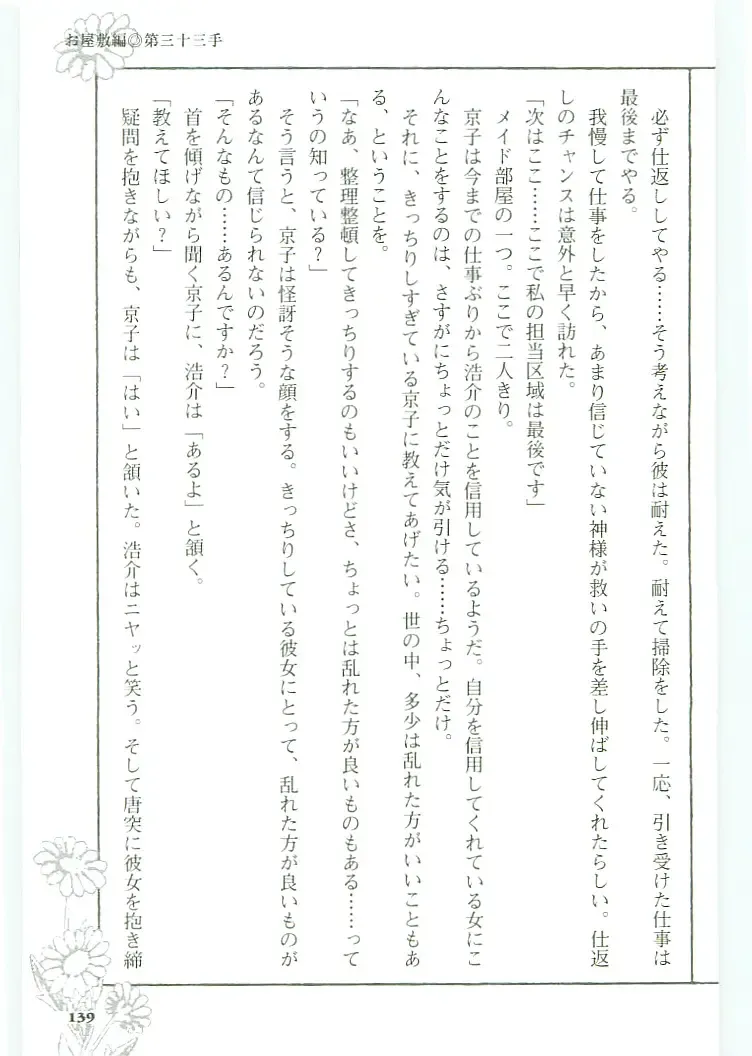 お屋敷編◎第三十三手
　必ず仕返ししてやる……そう考えながら彼は耐えた。耐えて掃除をした。一応、引き受けた仕事は
最後までやる。
　我慢して仕事をしたから、あまり信じていない神様が救いの手を差し伸ばしてくれたらしい。仕返
しのチャンスは意外と早く訪れた。
「次はここ……ここで私の担当区域は最後です」
　メイド部屋の一つ。ここで二人きり。
　京子は今までの仕事ぶりから浩介のことを信用しているようだ。自分を信用してくれている女にこ
んなことをするのは、さすがにちょっとだけ気が引ける……ちょっとだけ。
　それに、きっちりしすぎている京子に教えてあげたい。世の中、多少は乱れた方がいいこともあ
る、ということを。
「なあ、整理整頓してきっちりするのもいいけどさ、ちょっとは乱れた方が良いものもある……って
いうの知っている？」
　そう言うと、京子は怪訝そうな顔をする。きっちりしている彼女にとって、乱れた方が良いものが
あるなんて信じられないのだろう。
「そんなもの……あるんですか？」
　首を傾げながら聞く京子に、浩介は「あるよ」と頷く。
「教えてほしい？」
　疑問を抱きながらも、京子は「はい」と頷いた。浩介はニヤッと笑う。そして唐突に彼女を抱き締
139